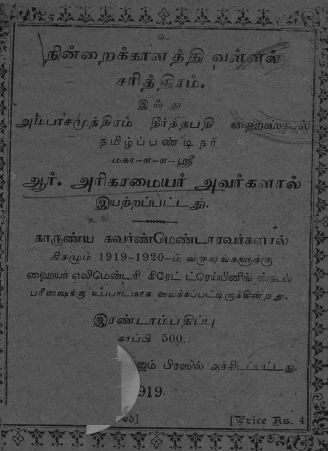 உ
நின்றைக்காளத்தி வள்ளல்
சரித்திரம்.
இஃது
அம்பாசமுத்திரம் தீர்த்தபதி ஹைஸ்கூல்
தமிழ்ப்பண்டிதர்
மகா-ள-ள-ஸ்ரீ
ஆர். அரிகரமையர் அவர்களால்
இயற்றப்பட்டது.
காருண்ய கவர்ண்மெண்டாரவர்களால்
நிகழும் 1919-1920-ம் வருஷங்களுக்கு
ஹையர் எலிமெண்டரி கிரேட் ட்ரெய்யினிங் ஸ்கூல்
பரீக்ஷைக்கு உப்பாடமாக வைக்கப்பட்டிருக்கின்றது.
இரண்டாம்பதிப்பு
காப்பி 500.
பிரஸில் அச்சிடப்பட்டது.
919.
[Price As. 4